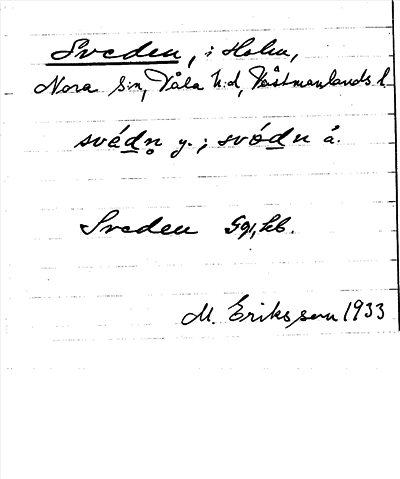 Sveden, i Holm,
Nora s:n, Våla h:d, Västmanlands l.
svédn y.; svödn ä.
Sveden Ggl, kb.
M. Eriksson 1933